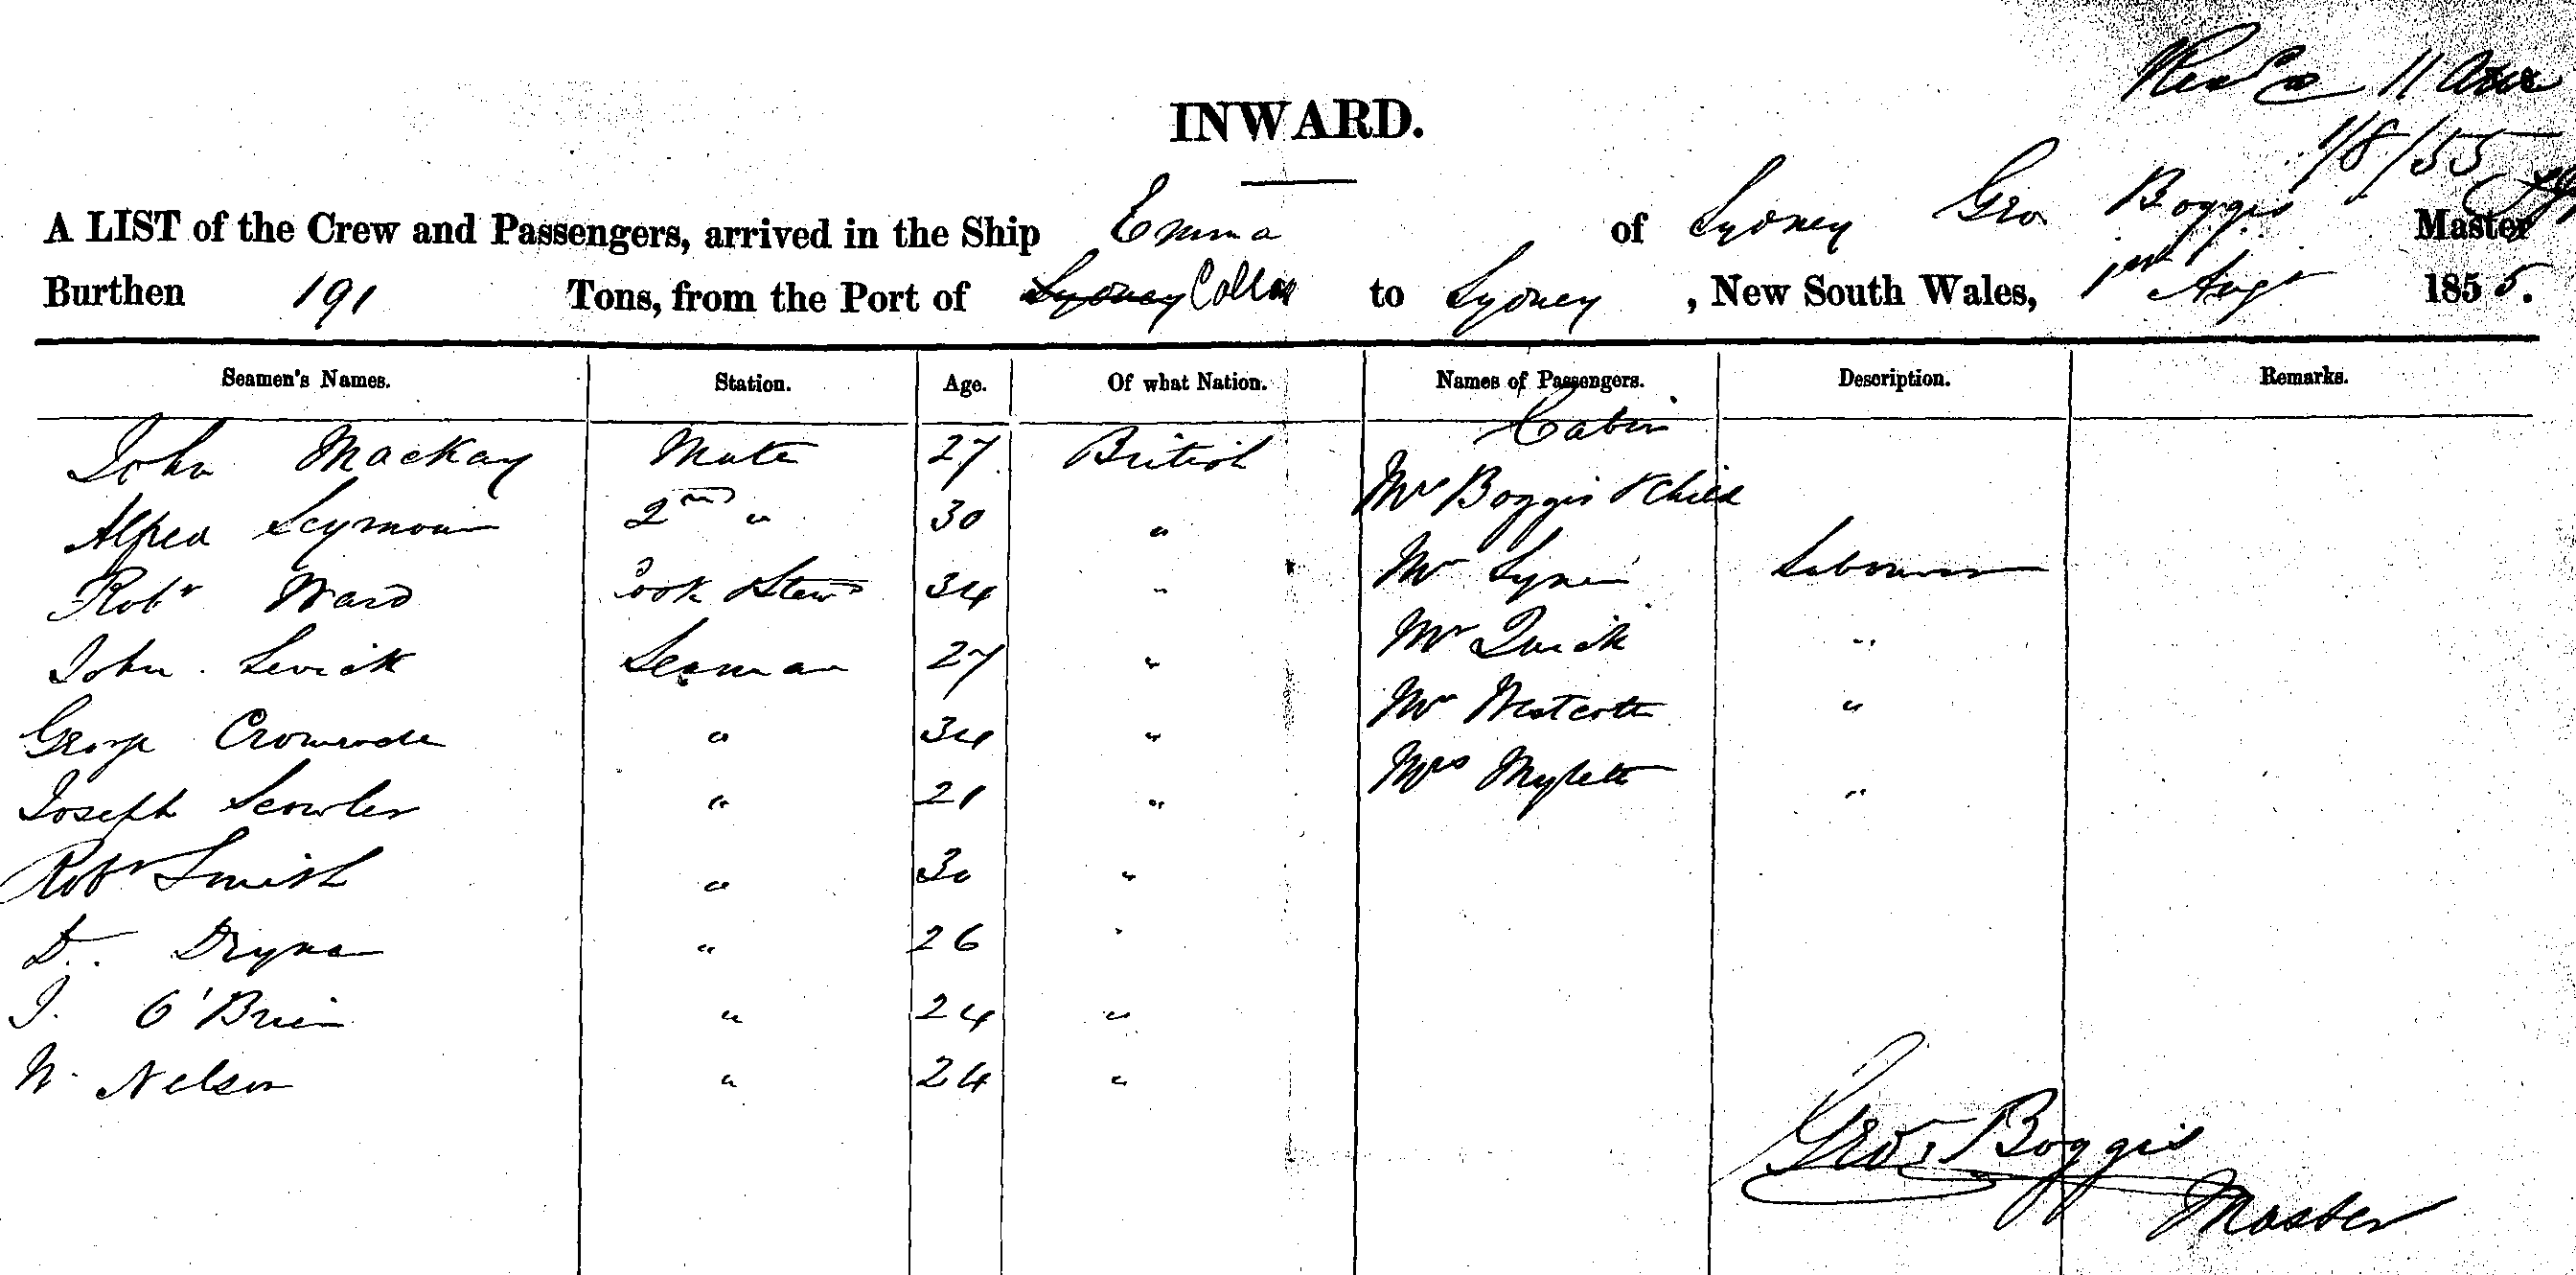 11 am
1/8/55
INWARD.
A LIST of the Crew and Passengers, arrived in the Ship Emma of Sydney Geo Boggis Master
Burthen 191 Tons, from the Port of Sydney Callao to Sydney, New South Wales, 1st Augt 1855.
Seamen's Names. Station. Age. Of what Nation. Names of Passengers. Description. Remarks.
Cabin
John Mackay Mate 27 British Mrs Boggis & Child
Alfred Seymour 2nd " 30 "
Robt Ward Cook & Stewd 34 " Mr Labourer
John Levick Seaman 27 " Mr Quick "
George " 34 " Mr Westcott "
Joseph Scowler " 21 " Mrs "
Robt Smith " 30 "
D. " 26 "
J. O'Brien " 24 "
W. Nelson " 24 "
Geo. Boggis
Master